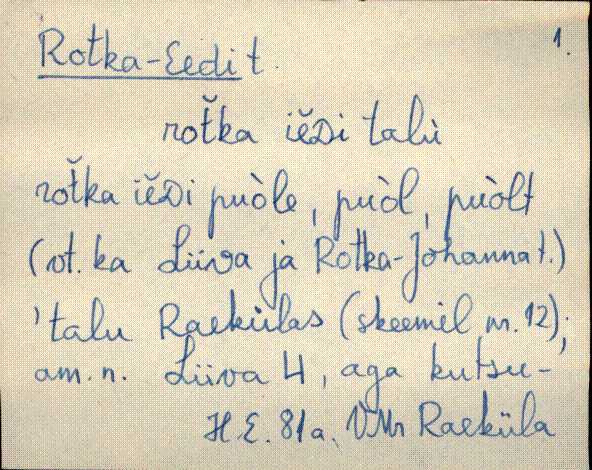 1.
Rotka-Eedi t.
rot̆ka iĕDi talù
rot̆ka iĕDi puòle, puòl, puòlt
(vt. ka Liiva ja Rotka-Johanna t.)
'talu Raekülas (skeemil nr. 12);
am. n. Liiva 4, aga kutsu-
H.E. 81a. VMr Raeküla